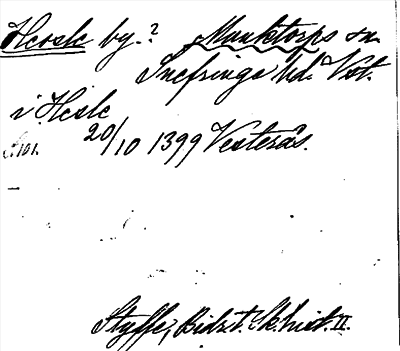 Hersle by? Munktorps sn.
Snefringe hd. Vstm.
i Hesle
20/10 1399 Vesterås.
S. 101.
Styffe, Bidr. t. Sk. hist. II.